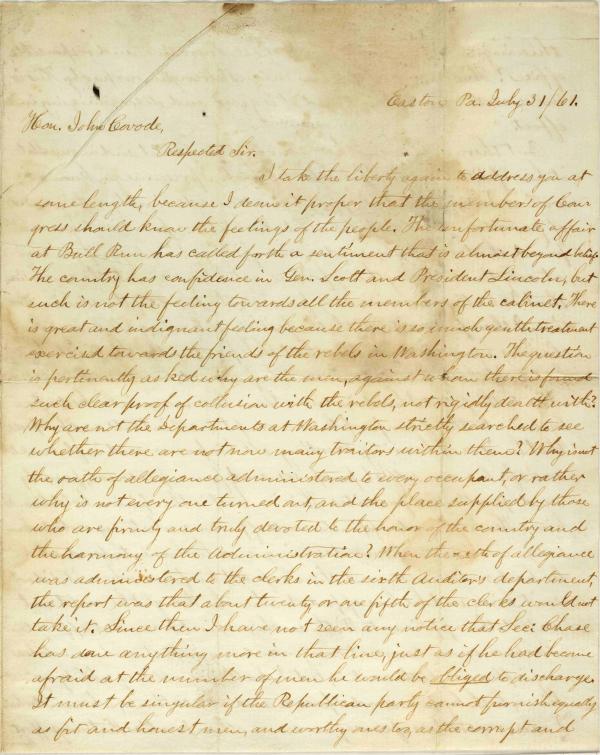 Easton Pa. July 31/61.
Hon. John Covode,
Respected Sir.
I take the liberty again to address you at
some length, because I deem it proper that the members of Con
gress should know the feelings of the people. The unfortunate affair
at Bull Run has called forth a sentiment that is almost beyond belief.
The country has confidence in Gen. Scott and President Lincoln, but
such is not the feeling towards all the members of the cabinet. There
is great and indignant feeling because there is so much gentle treatment
exercised towards the friends of the rebels in Washington. The question
is pertinently asked why are the men, against whom there is found
such clear proof of collusion with the rebels, not rigidly dealth with?
Why are not the Departments at Washington strictly searched to see
whether there are not now many traitors within them? Why is not
the oath of allegiance administered to every occupant, or rather
why is not every one turned out, and the place supplied by those
who are firmly and truly devoted to the honor of the country and
the harmony of the Administration? When the oath of allegiance
was administered to the clerks in the sixth Auditor's department,
the report was that about twenty or one fifth of the clerks would not
take it. Since then I have not seen any notice that Sec: Chase
has done anything more in that line, just as if he had become
afraid at the number of men he would be obliged to discharge.
It must be singular if the Republican party cannot furnish equally
as fit and honest men, and worthy ones too, as the corrupt and